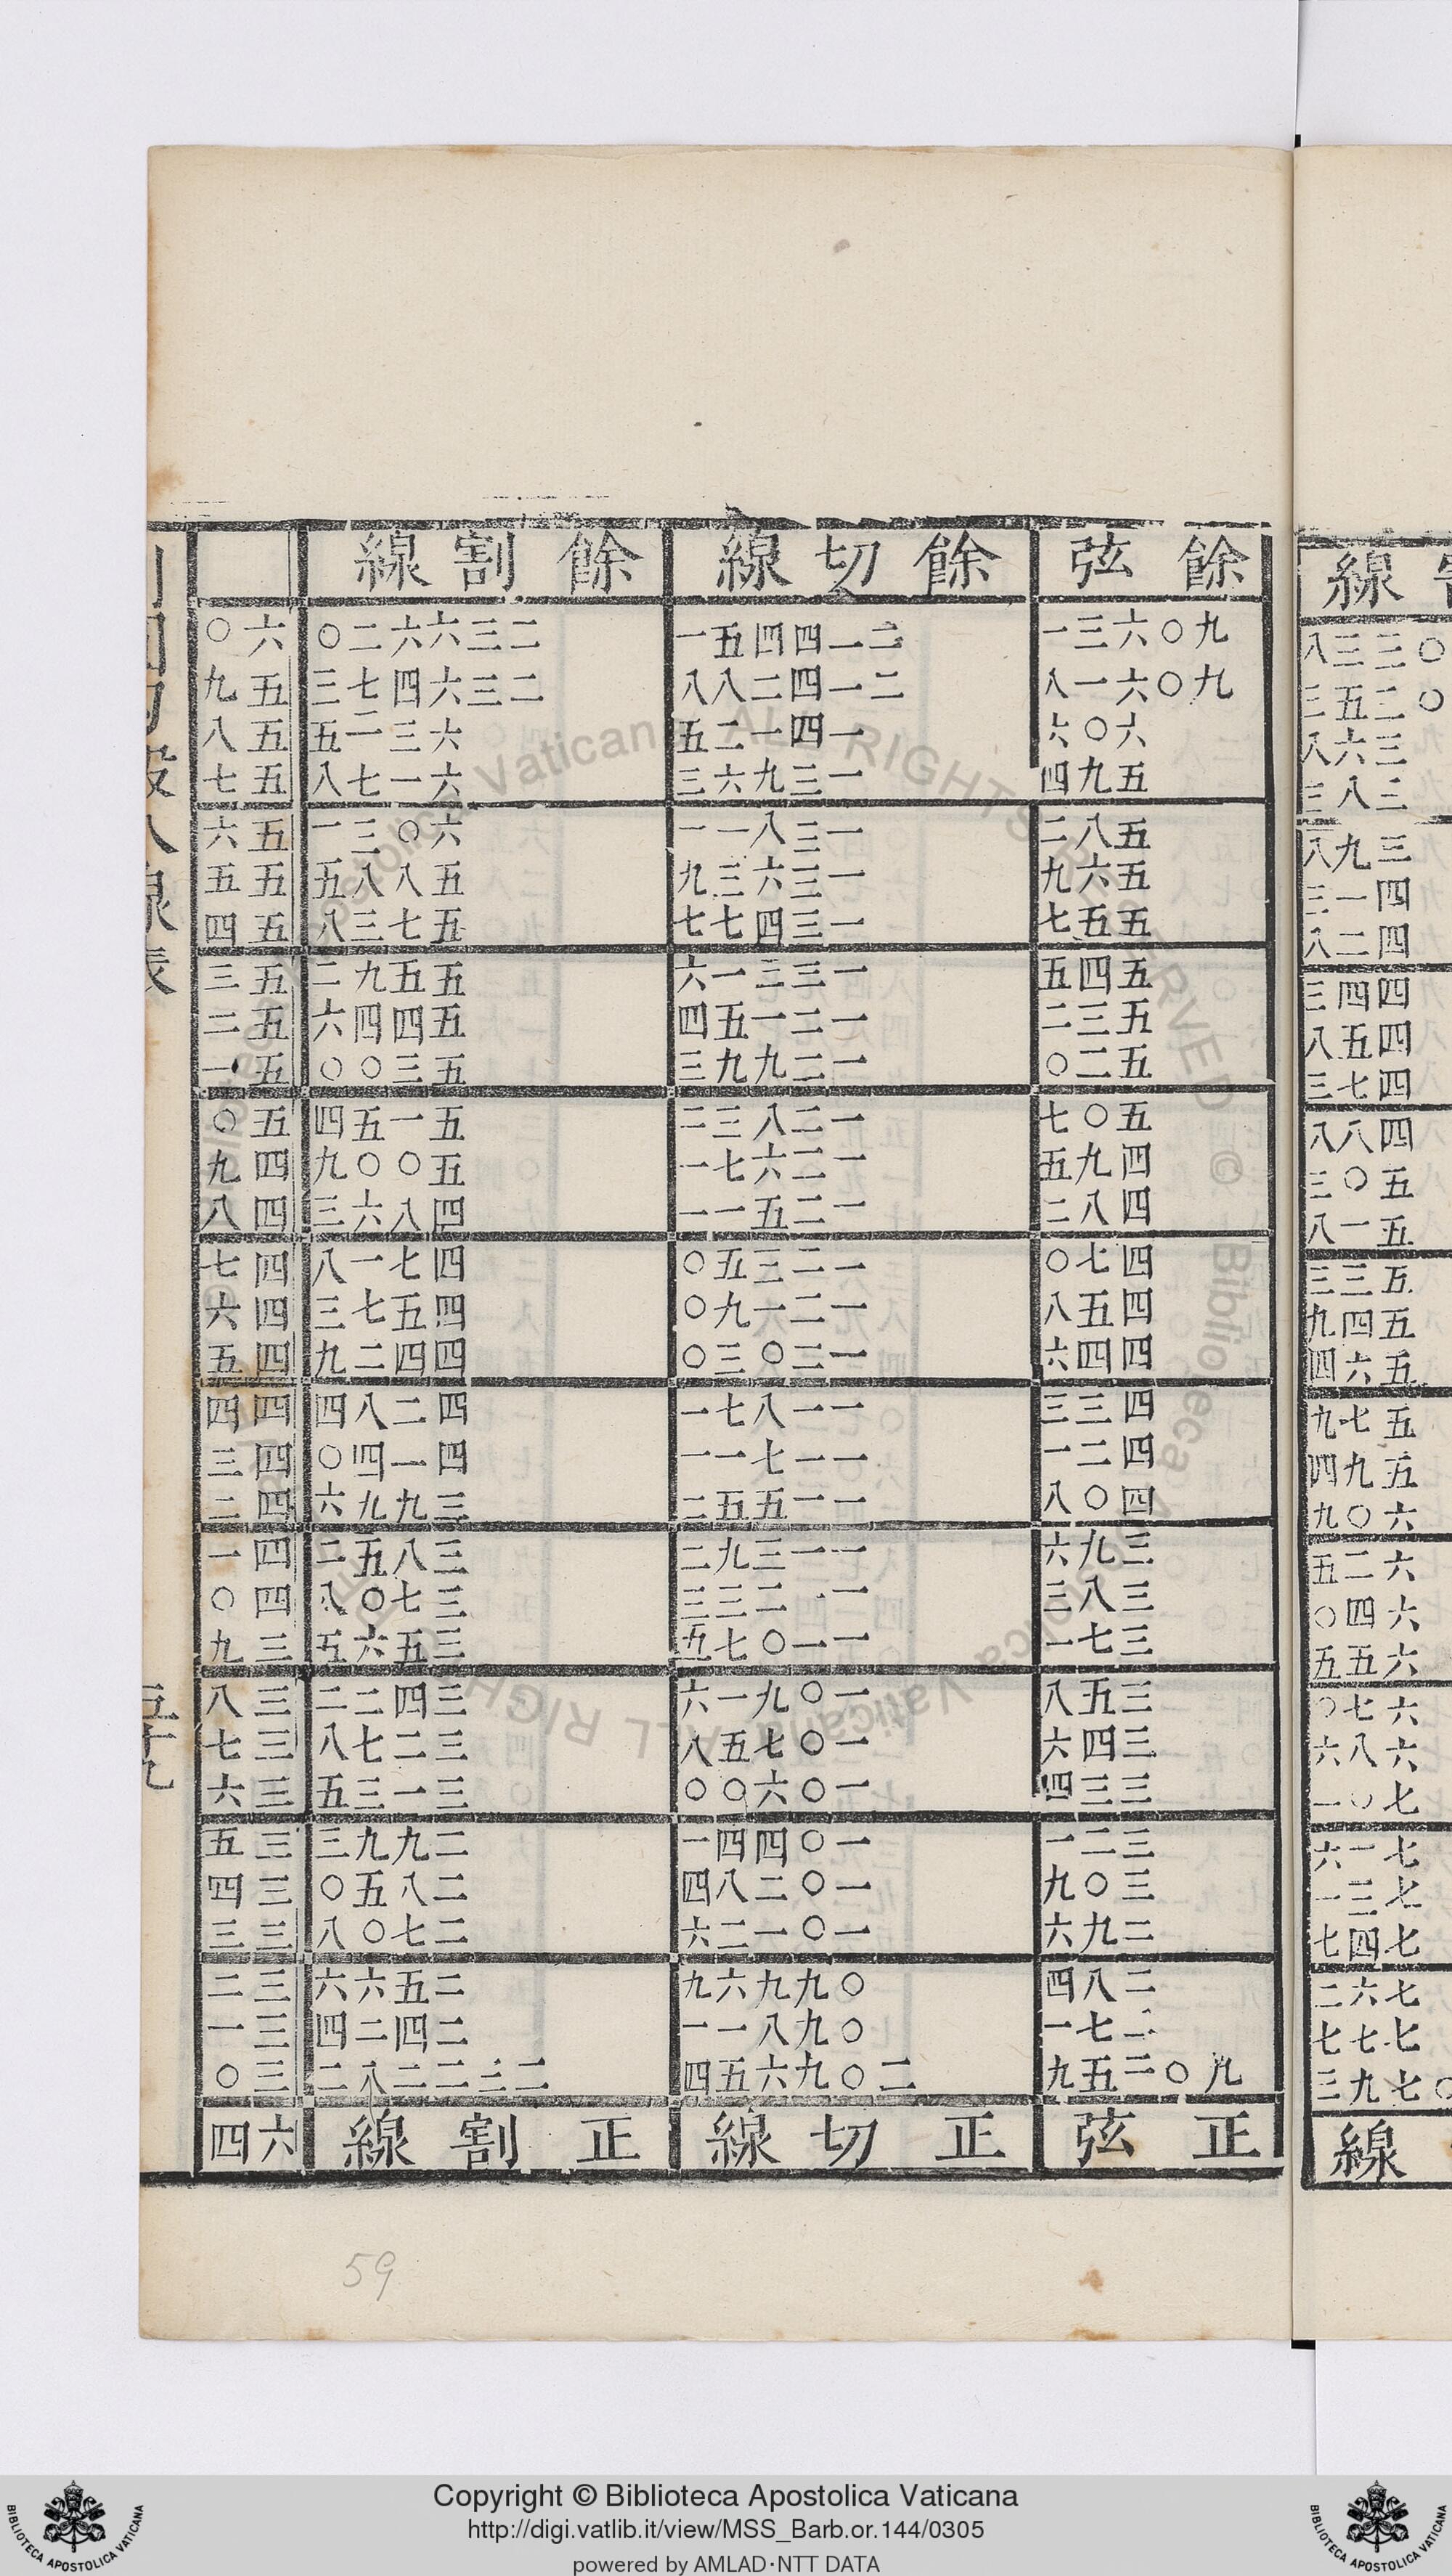 線
〇三三八
〇二五三
三六八
三八三
三九八
四一三
四二八
四四三
四五八
四七三
四八八
五〇三
五一八
五三三
五四九
五六四
五七九
五九四
六〇九
六二五
六四〇
六五五
六七〇
六八六
七〇一
七一六
七三一
七四七
七六二
七七七
〇七九三
線
餘弦 餘切線 餘割線
九〇六三一 二一四四五一 二三六六二〇 六〇
九〇六一八 二一四二八八 二三六四七三 五九
六〇六 一四一二五 六三二五 五八
五九四 一三九六三 六一七八 五七
五八二 一三八一一 六〇三一 五六
五六九 一三六三九 五八八五 五五
五五七 一三四七七 五七三八 五四
五四五 一三三一六 五五九二 五三
五三二 一三一五四 五四四六 五二
五二〇 一二九九三 五三〇〇 五一
五〇七 一二八三二 五一五四 五〇
四九五 一二六七一 五〇〇九 四九
四八二 一二五一一 四八六三 四八
四七〇 一二三五〇 四七一八 四七
四五八 一二一九〇 四五七三 四六
四四六 一二〇三〇 四四二九 四五
四三三 一一八七一 四二八四 四四
四二一 一一七一一 四一四〇 四三
四〇八 一一五五二 三九九六 四二
三九六 一一三九二 三八五二 四一
三八三 一一二三三 三七〇八 四〇
三七一 一一〇七五 三五六五 三九
三五八 一〇九一六 三四二二 三八
三四六 一〇七五八 三二七八 三七
三三四 一〇六〇〇 三一三五 三六
三二一 一〇四四一 二九九三 三五
三〇九 一〇二八四 二八五〇 三四
二九六 一〇一二六 二七〇八 三三
二八四 〇九九六九 二五六六 三二
二七一 〇九八一一 二四二四 三一
九〇二五九 二〇九六五四 二三二二八二 三〇
正弦 正切線 正割線 六四
五十九
59
Copyright © Biblioteca Apostolica Vaticana
http://digi.vatlib.it/view/MSS_Barb.or.144/0305
powered by AMLAD·NTT DATA